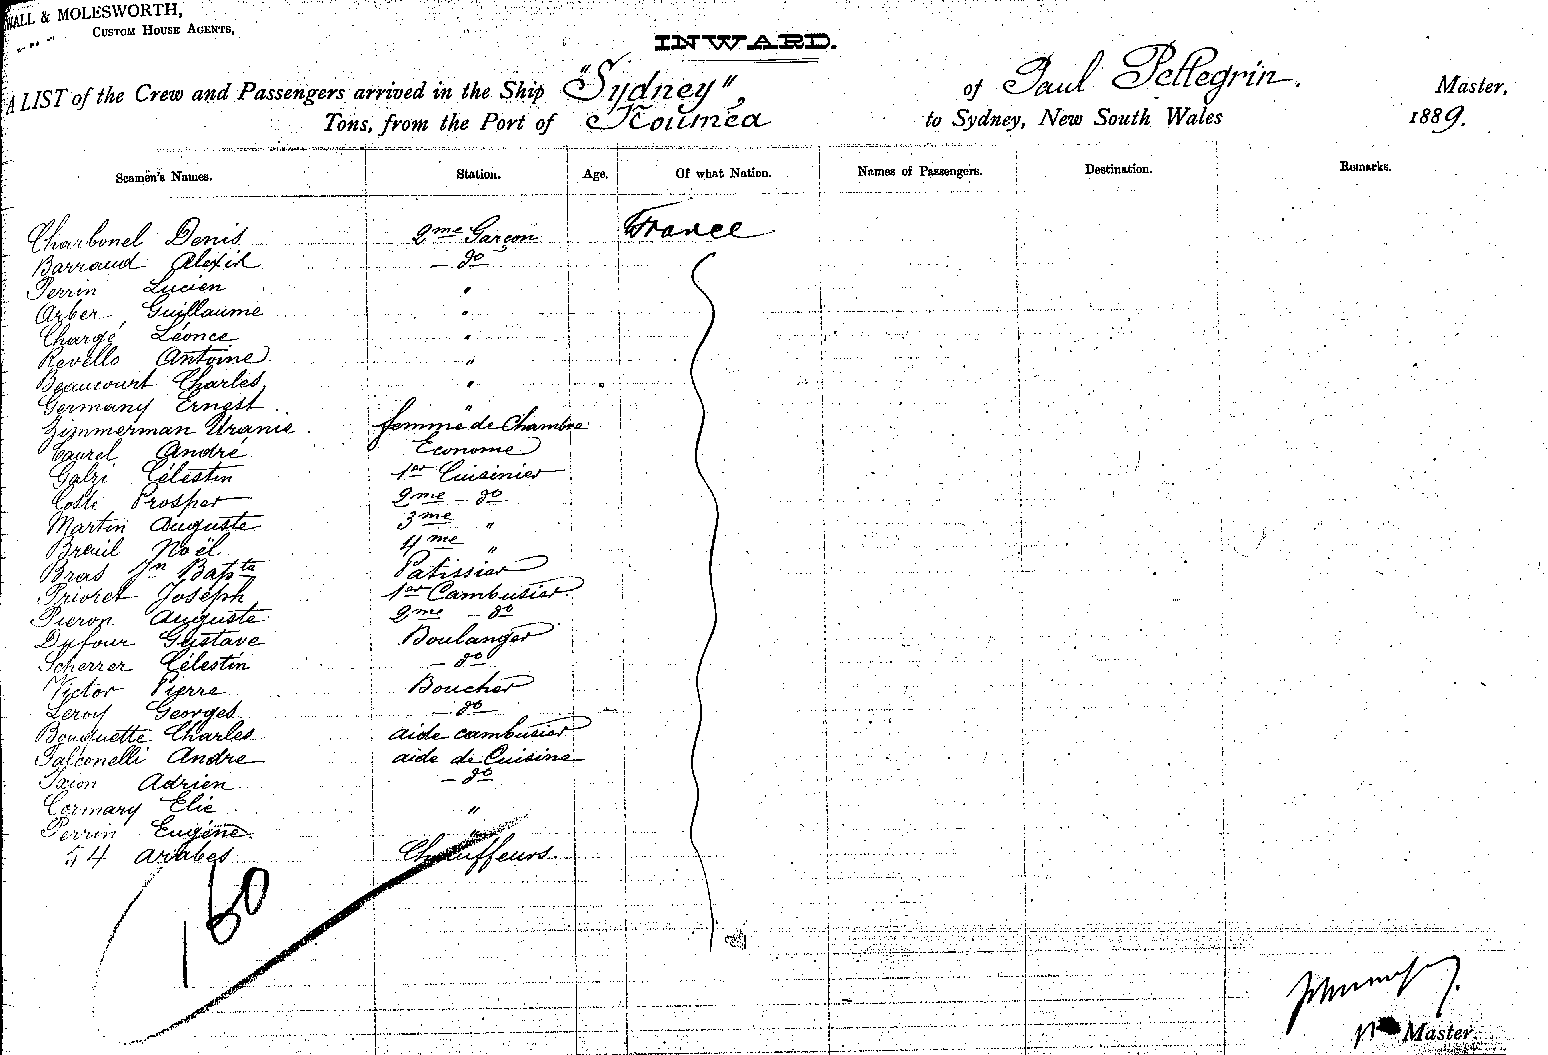 WALL & MOLESWORTH,
CUSTOM HOUSE AGENTS,
INWARD.
A LIST of the Crew and Passengers arrived in the Ship "Sydney" of Paul Pellegrin. Master,
Tons, from the Port of Noumea to Sydney, New South Wales 1889.
Seamen's Names. Station. Age. Of what Nation. Names of Passengers. Destination. Remarks.
Charbonel Denis 2me Garçon France
Barraud Alexis do
Perrin Lucien "
Arber Guillaume "
Chargé Léonce "
Revello Antoine "
Beaucourt Charles "
Germany Ernest "
Zimmerman Uranie femme de Chambre
Laurel André Econome
Galzi Célestin 1er Cuisinier
Coste Prosper 2me do
Martin Auguste 3me "
Breuil Noël 4me "
Bras Jn Bapte Patissier
Prioret Joseph 1er Cambusier
Pieron Auguste 2me do
Dufour Gustave Boulanger
Scherrer Célestin do
Victor Pierre Boucher
Leroy Georges do
Bouquette Charles aide cambusier
Falconelli Andre aide de Cuisine
Ixion Adrien do
Cormary Elie "
Perrin Eugène "
54 arabes Chauffeurs.
160
Master.